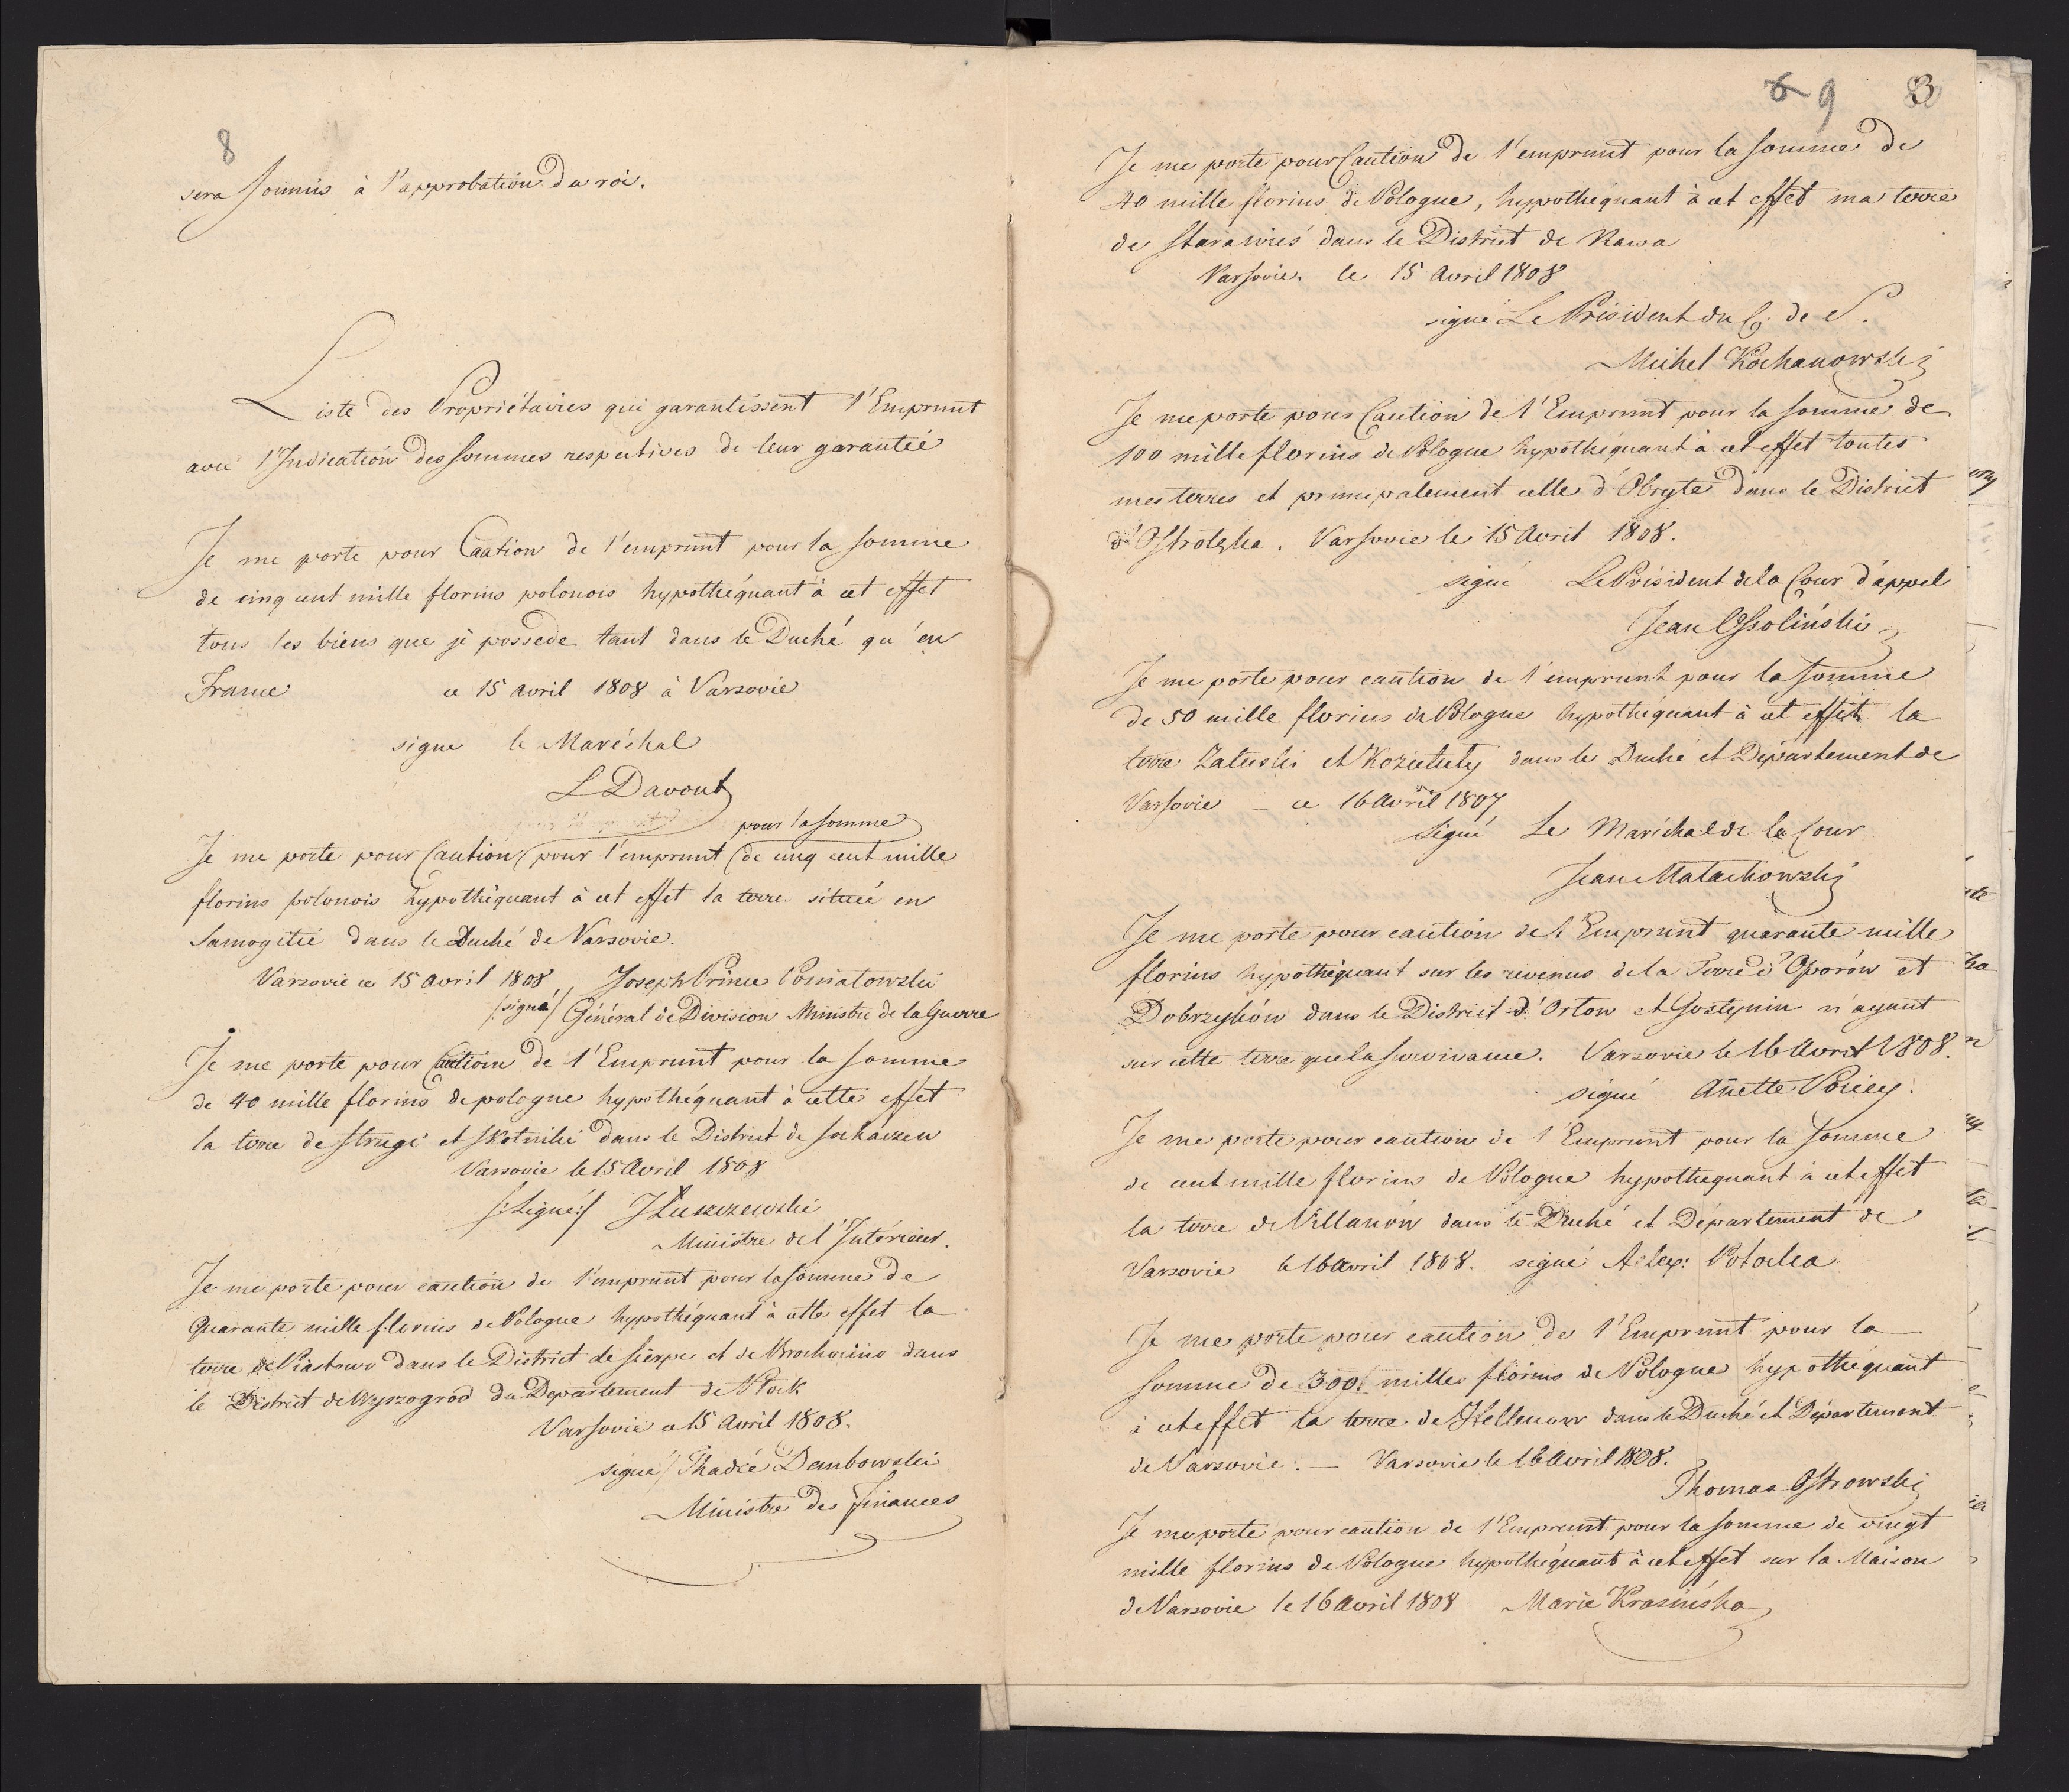 8
sera soumis à l'approbation du roi.
Liste des Propriétaires qui garantissent l'Emprunt
avec l'Indication des sommes respectives de leur garantie
Je me porte pour Caution de l'emprunt pour la somme
de cinq cent mille florins polonois hypothéquant à cet effet
tous les biens que je possede tant dans le Duché qu'en
France ce 15 avril 1808 à Varsovie
signe le Maréchal
L Davout
pour la somme
Je me porte pour Caution pour l'emprunt de cinq cent mille
florins polonois hypothéquant à cet effet la terre située en
Samogitie dans le Duché de Varsovie.
Varsovie ce 15 avril 1808, Joseph Prince Poniatowski
/signé/ Général de Division Ministre de la Guerre
Je me porte pour Caution de l'Emprunt pour la somme
de 40 mille florins de pologne hypothéquant à cette effet
la terre de Strugi et Skotniki dans le District de Sochaczew
Varsovie le 15 Avril 1808
/:Signé:/ J Łuszczewski
Ministre de l'Intérieur.
Je me porte pour caution de l'emprunt pour la somme de
Quarante mille florins de Pologne hypothéquant à cette effet la
terre de Piastowo dans le District de Sierpc et de Brochocino dans
le District de Wyszogrod du Departement de Plock
Varsovie ce 15 Avril 1808.
signé/ Thadée Dembowski
Ministre des finances
6 9 3
Je me porte pour Caution de l'emprunt pour la somme de
40 mille florins de Pologne, hypothéquant à cet effet ma terre
de Starawieś dans le District de Rawa
Varsovie. le 15 Avril 1808
signé Le Président du C. de S.
Michel Kochanowski
Je me porte pour Caution de l'Emprunt pour la somme de
100 mille florins de Pologne hypothéquant à cet effet toutes
mes terres et principalement celle d'Obryte dans le District
d'Ostrołęka. Varsovie le 15 Avril 1808.
signé Le Président de la Cour d'appel
Jean Ossoliński
Je me porte pour caution de l'emprunt pour la somme
de 50 mille florins de Pologne hypothéquant à cet effet la
terre Zatuski et Kozietuty dans le Duché et Département de
Varsovie – ce 16 Avril 1807
signé Le Maréchal de la Cour
Jean Małachowski
Je me porte pour caution de l'Emprunt quarante mille
florins hypothéquant sur les revenus de la Terre d'Oporów et
Dobrzyków dans le District d'Orłow et Gostynin n'ayant
sur cette terre que la survivance. Varsovie le 16 Avril 1808.
signé Anette Pociey.
Je me porte pour caution de l'Emprunt pour la somme
de cent mille florins de Pologne hypothequant à cet effet
la terre de Villanów dans le Duché et Département de
Varsovie le 16 Avril 1808. signé Alex: Potocka
Je me porte pour caution de l'Emprunt pour la
somme de 300. milles florins de Pologne hypothéquant
à cet effet la terre de Hellenow dans le Duché et Département
de Varsovie. – Varsovie le 16 Avril 1808.
Thomas Ostrowski
Je me porte pour caution de l'Emprunt pour la somme de vingt
mille florins de Pologne hypothéquant à cet effet sur la Maison
de Varsovie le 16 Avril 1808 Marie Krasińska